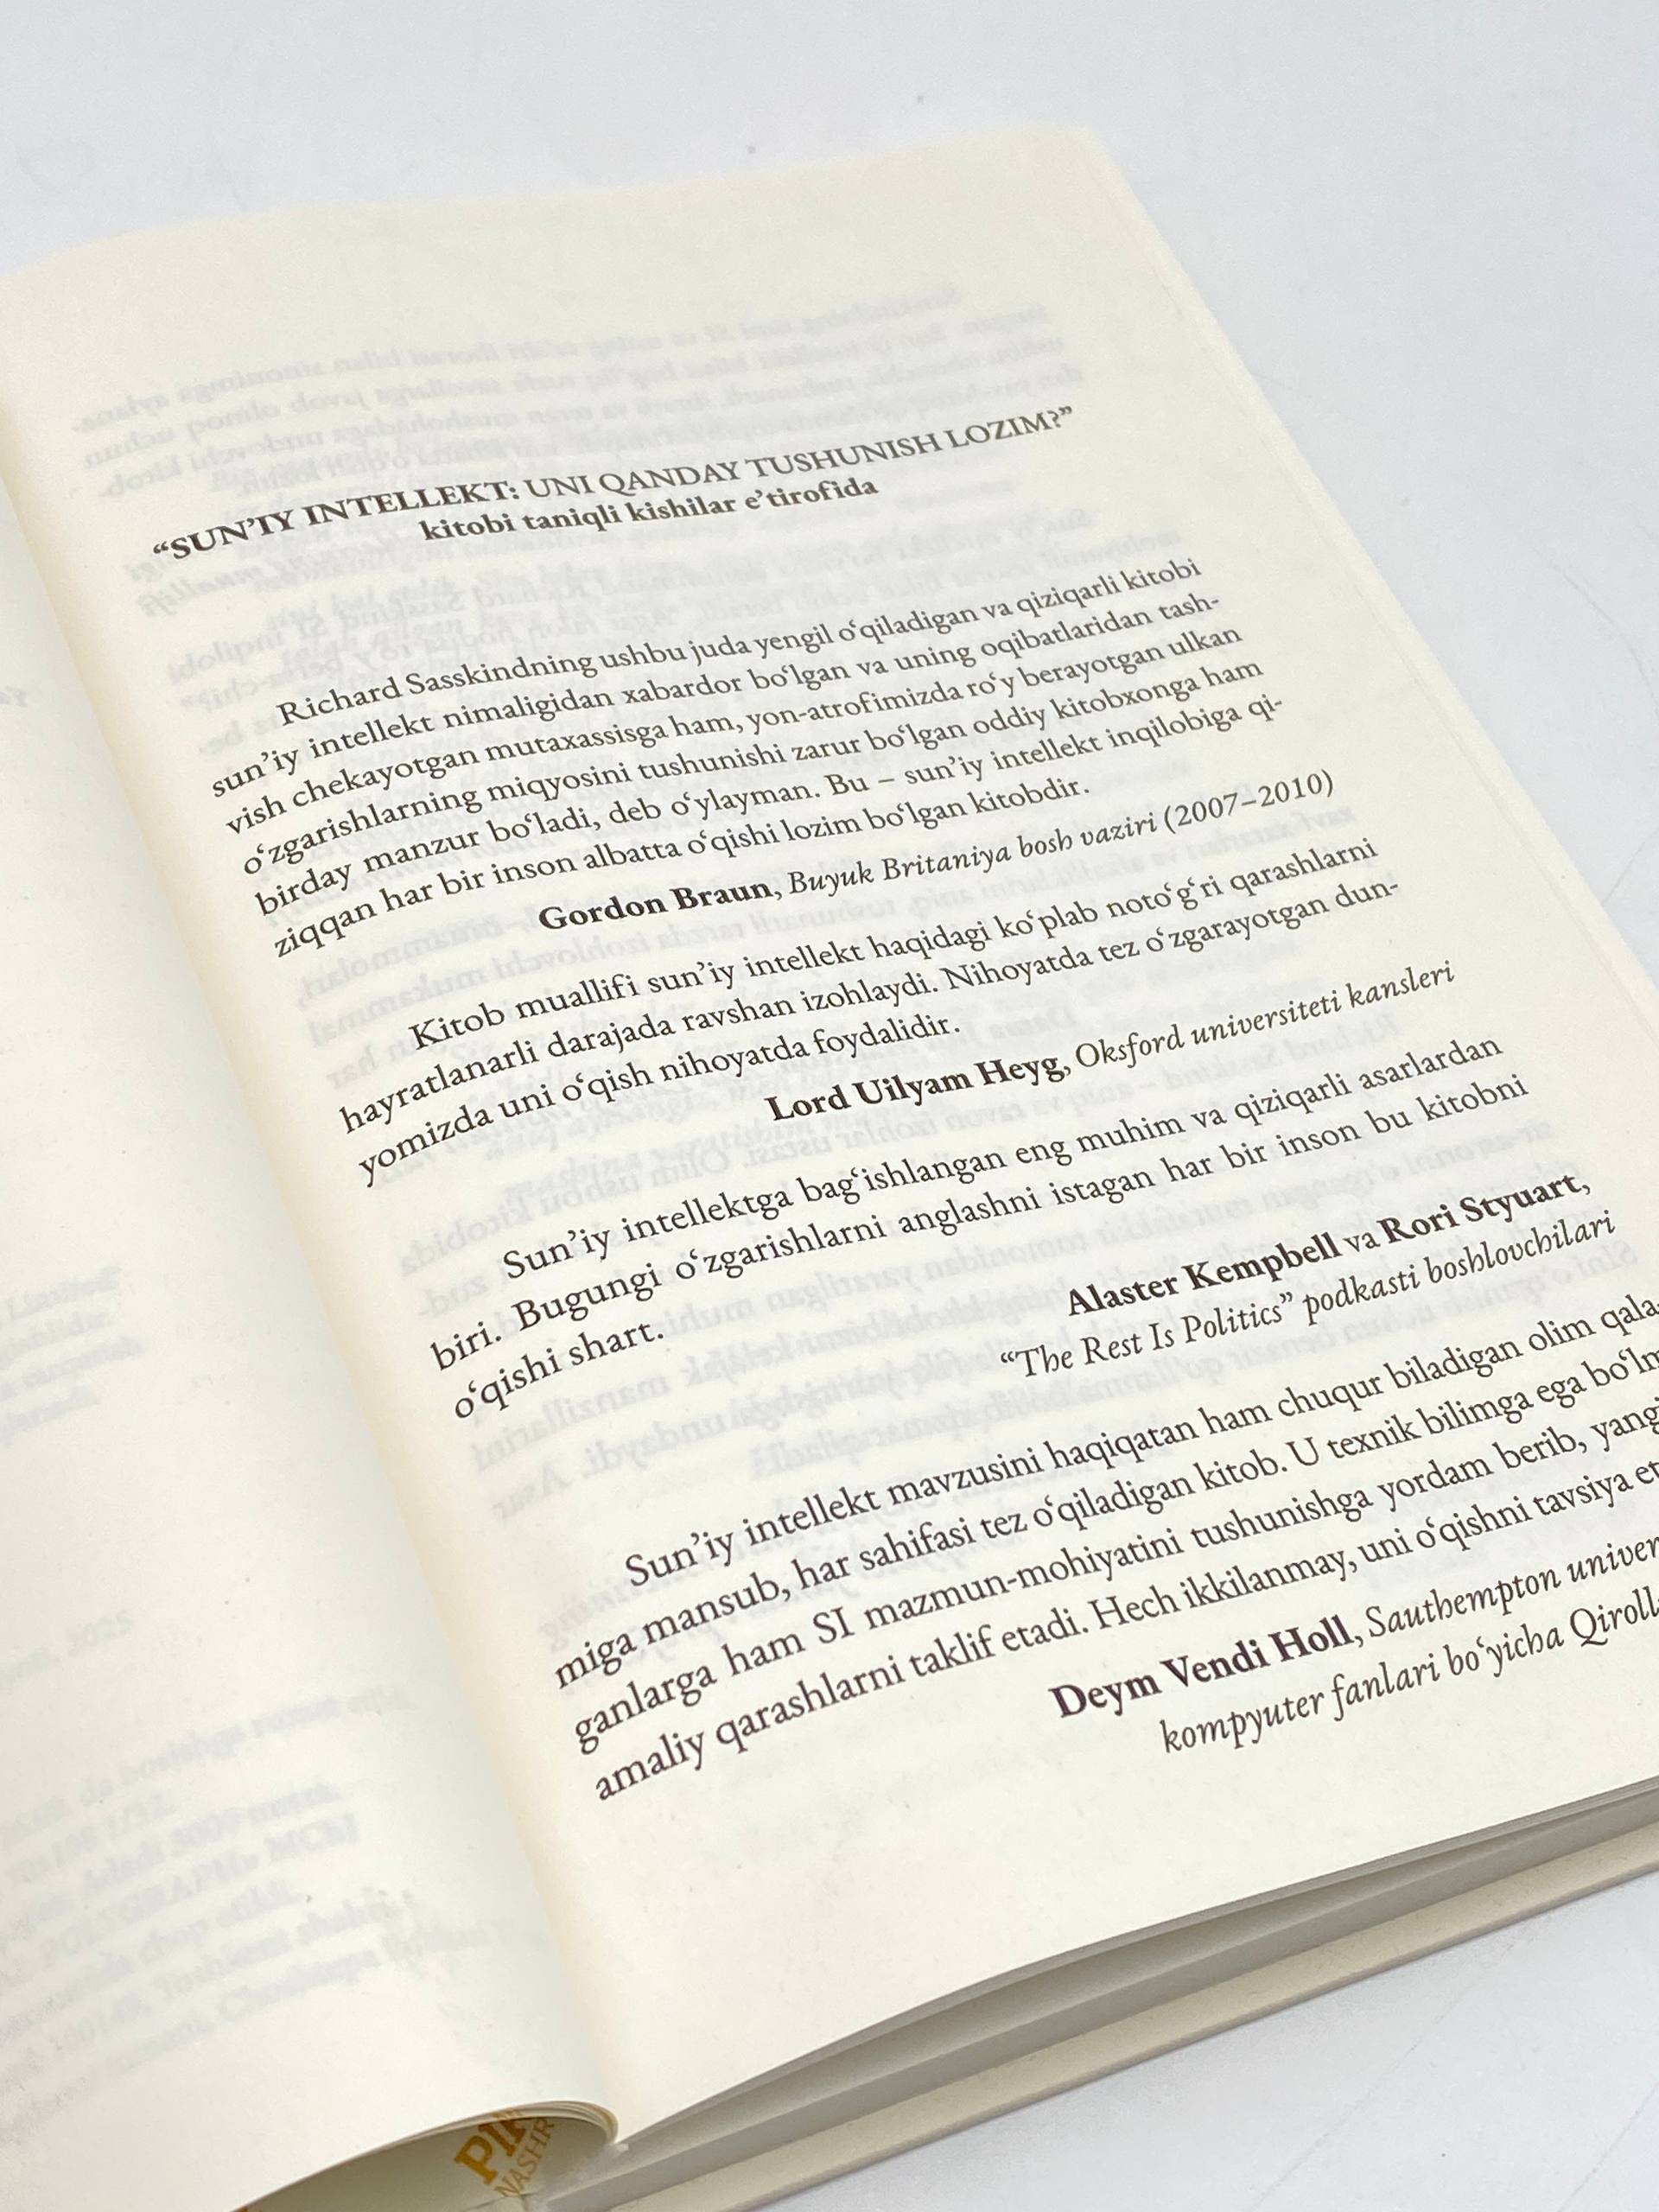 “SUN’IY INTELLEKT: UNI QANDAY TUSHUNISH LOZIM?”
kitobi taniqli kishilar e’tirofida
Richard Sasskindning ushbu juda yengil o‘qiladigan va qiziqarli kitobi
sun’iy intellekt nimaligidan xabardor bo‘lgan va uning oqibatlaridan tash-
vish chekayotgan mutaxassisga ham, yon-atrofimizda ro‘y berayotgan ulkan
o‘zgarishlarning miqyosini tushunishi zarur bo‘lgan oddiy kitobxonga ham
birday manzur bo‘ladi, deb o‘ylayman. Bu – sun’iy intellekt inqilobiga qi-
ziqqan har bir inson albatta o‘qishi lozim bo‘lgan kitobdir.
Gordon Braun, Buyuk Britaniya bosh vaziri (2007–2010)
Kitob muallifi sun’iy intellekt haqidagi ko‘plab noto‘g‘ri qarashlarni
hayratlanarli darajada ravshan izohlaydi. Nihoyatda tez o‘zgarayotgan dun-
yomizda uni o‘qish nihoyatda foydalidir.
Lord Uilyam Heyg, Oksford universiteti kansleri
Sun’iy intellektga bag‘ishlangan eng muhim va qiziqarli asarlardan
biri. Bugungi o‘zgarishlarni anglashni istagan har bir inson bu kitobni
o‘qishi shart.
Alaster Kempbell va Rori Styuart,
“The Rest Is Politics” podkasti boshlovchilari
Sun’iy intellekt mavzusini haqiqatan ham chuqur biladigan olim qala-
miga mansub, har sahifasi tez o‘qiladigan kitob. U texnik bilimga ega bo‘lm
ganlarga ham SI mazmun-mohiyatini tushunishga yordam berib, yangi
amaliy qarashlarni taklif etadi. Hech ikkilanmay, uni o‘qishni tavsiya et
Deym Vendi Holl, Sauthempton univer
kompyuter fanlari bo‘yicha Qiroll
NASHR